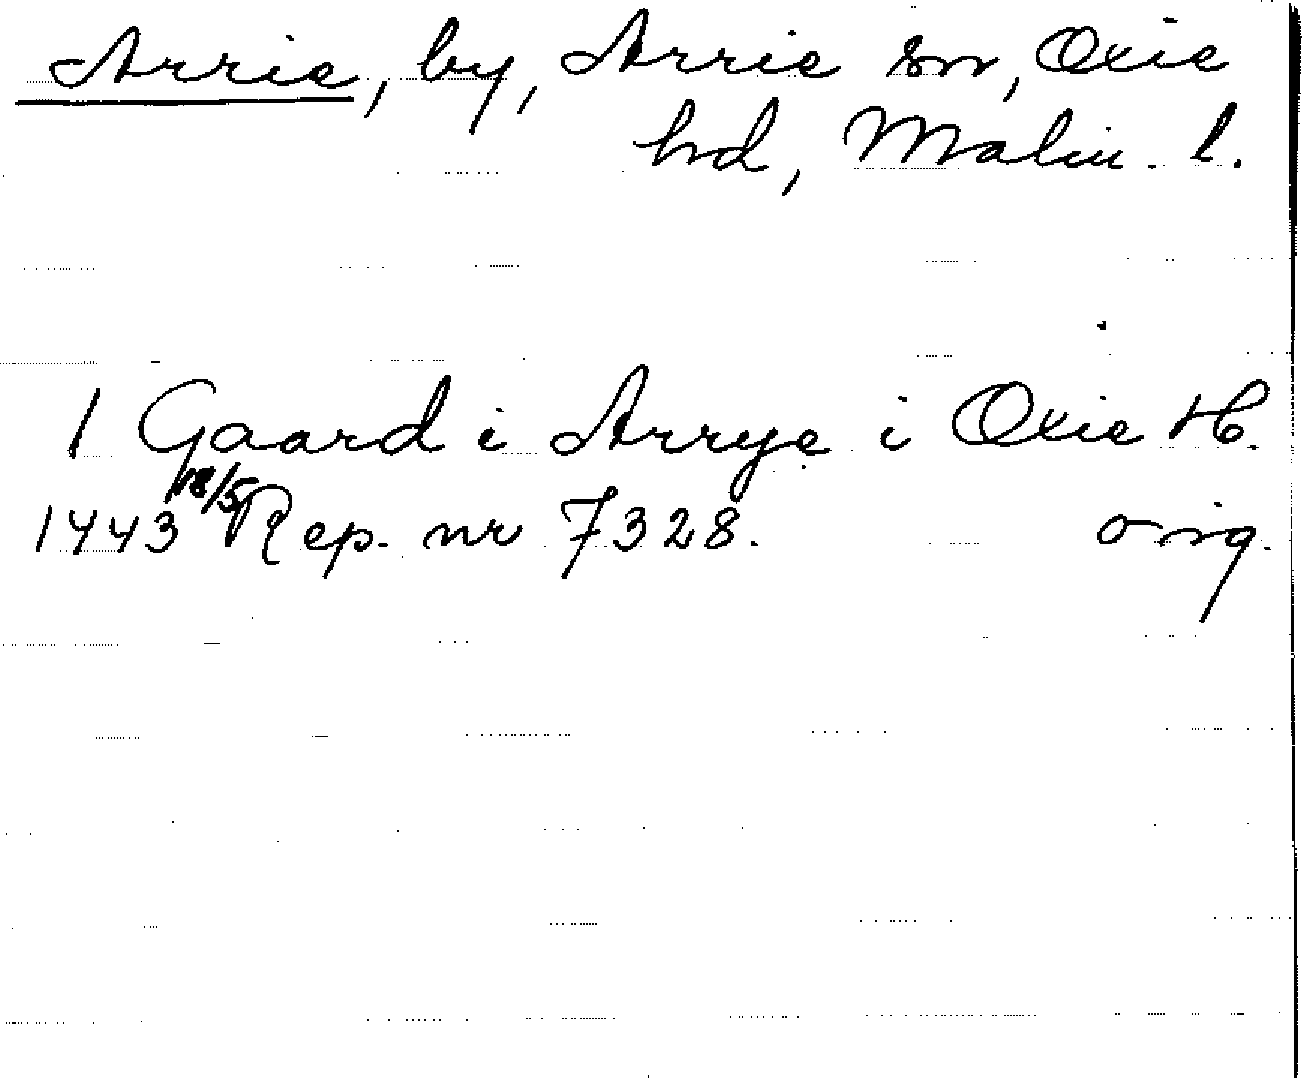 Arrie, by, Arrie sn, Oxie
hd, Malm. l.
1 Gaard i Arrye i Oxie H.
1443 18/5 Rep. nr 7328. orig.